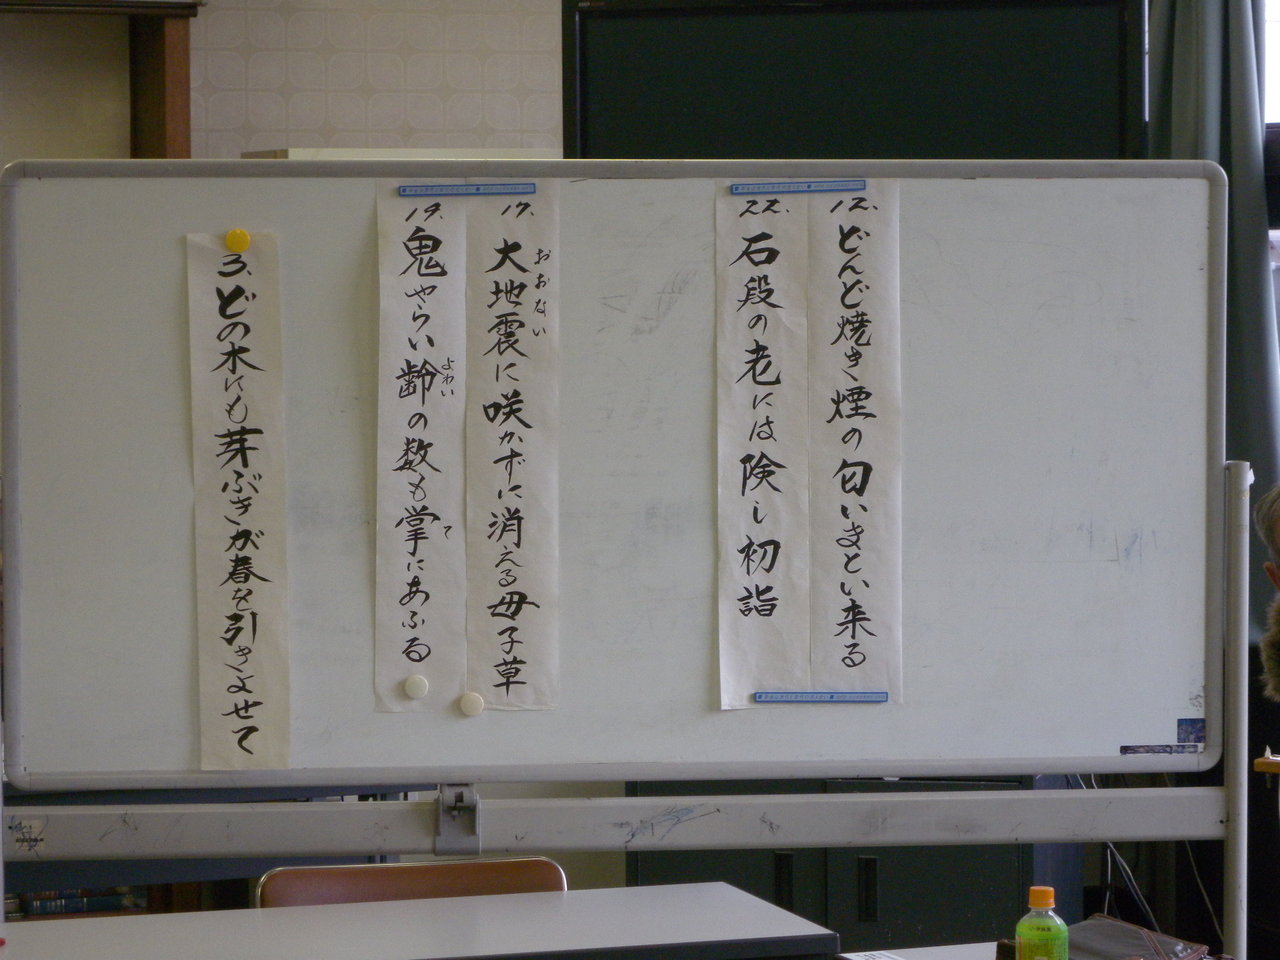 12. どんど焼き煙の匂いまとい来る
22. 石段の老には険し初詣
17. 大地震に咲かずに消える母子草
おおない
19. 鬼やらい齢の数も掌にあふる
よわい
て
3. どの木にも芽ぶきが春を引きよせて